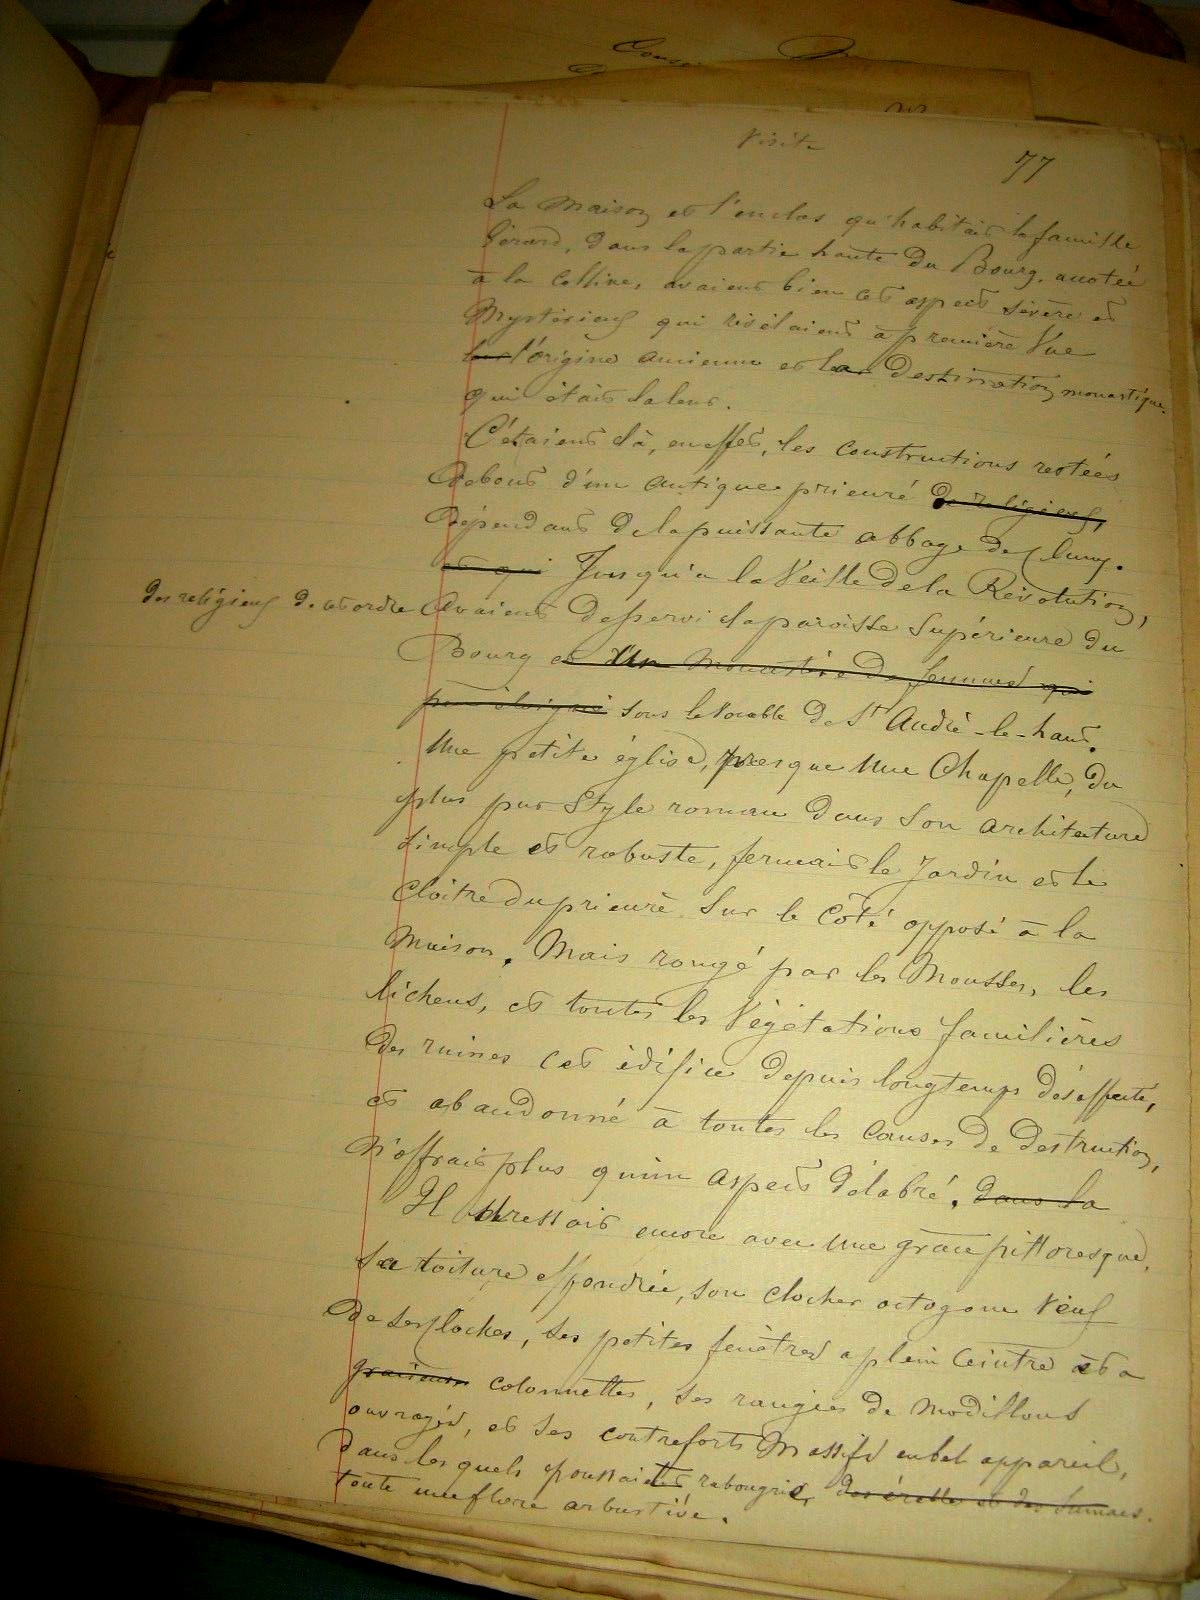 Visite
77
La Maison et l'enclos qu'habitait la famille
Gérard, dans la partie haute du Bourg, accotée
à la colline, avaient bien cet aspect sévère et
Mystérieux qui révélaient à première Vue
leur l'origine ancienne et la destination monastique
qui était la leur.
C'étaient là, en effet, les constructions restées
debout d'un antique prieuré de religieux,
dépendant de la puissante abbaye de Cluny.
et qui Jusqu'à la Veille de la Révolution,
des religieux de cet ordre avaient desservi la paroisse Supérieure du
Bourg et Un Monastère de femmes qui
peu éloigné sous le Vocable de St André-le-haut.
Une petite église, presque Une Chapelle, du
plus pur Style roman dans Son architecture
simple et robuste, fermait le Jardin et le
cloître du prieuré Sur le côté opposé à la
Maison. Mais rongé par les Mousses, les
lichens, et toutes les Végétations familières
des ruines cet édifice depuis longtemps désaffecté,
et abandonné à toutes les causes de destruction,
N'offrait plus qu'un aspect délabré. dans la
Il dressait encore avec Une grâce pittoresque
Sa toiture effondrée, son clocher octogone Veuf
de ses cloches, ses petites fenêtres a plein ceintre et a
gracieuses colonnettes, ses rangées de Modillons
ouvragés, et ses contreforts Massifs en bel appareil,
dans les quels poussaient, rabougris, des érables et des Sumacs.
toute une flore arbustive.